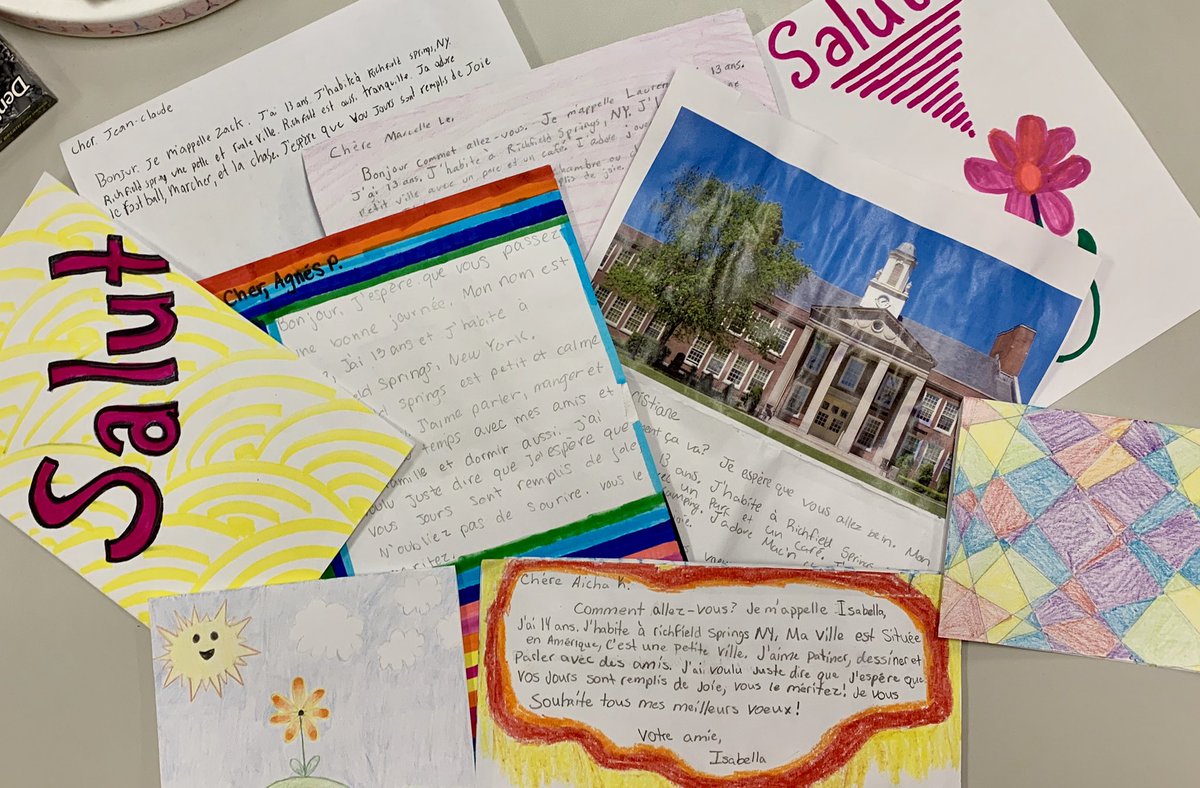 Den
Cher, Jean-claude
Bonjur. Je m'appelle Zack. J'ai 13 ans. J'habite à Richfield Springs, NY.
Richfield spring une petite et rurale ville. Richfield est aussi tranquille. J'a adore
le football, marcher, et la chase. J'espère que vos Jours sont remplis de Joie
Chère Marcelle Le,
Bonjour Commet allez-vous. Je m'appelle Lauren
13 ans.
J'ai 13 ans. J'habite à Richfield Springs, NY. J'
Petit ville avec un parc et un café. I adore
Salut
Salut
Cher, Agnès P.
Bonjour, J'espère que vous passez
une bonne journée. Mon nom est
, J'ai 13 ans et J'habite à
eld Springs, New York.
d springs est petit et calme
J'aime parler, manger et
temps avec mes amis et
amille et dormir aussi. J'ai
oulu juste dire que J'espère que
vous Jours sont remplis de joie
N'oubliez pas de sourire. vous le
méritez.
ristiane
ment ça va? Je espère que vous allez bein. Mon
13 ans, J'habite à Richfield Springs
un Parc et un Café.
camping. J'adore Mac'n
Chère Aicha K.
Comment allez-vous? Je m'appelle Isabella,
J'ai 14 ans. J'habite à richfield Springs NY. Ma ville est Située
en Amérique, C'est une petite ville. J'aime patiner, dessiner et
Parler avec des amis. J'ai voulu juste dire que J'espère que
vos Jours sont remplis de Joie, vous le méritez! Je vous
Souhaite tous mes meilleurs voeux!
Votre amie,
Isabella